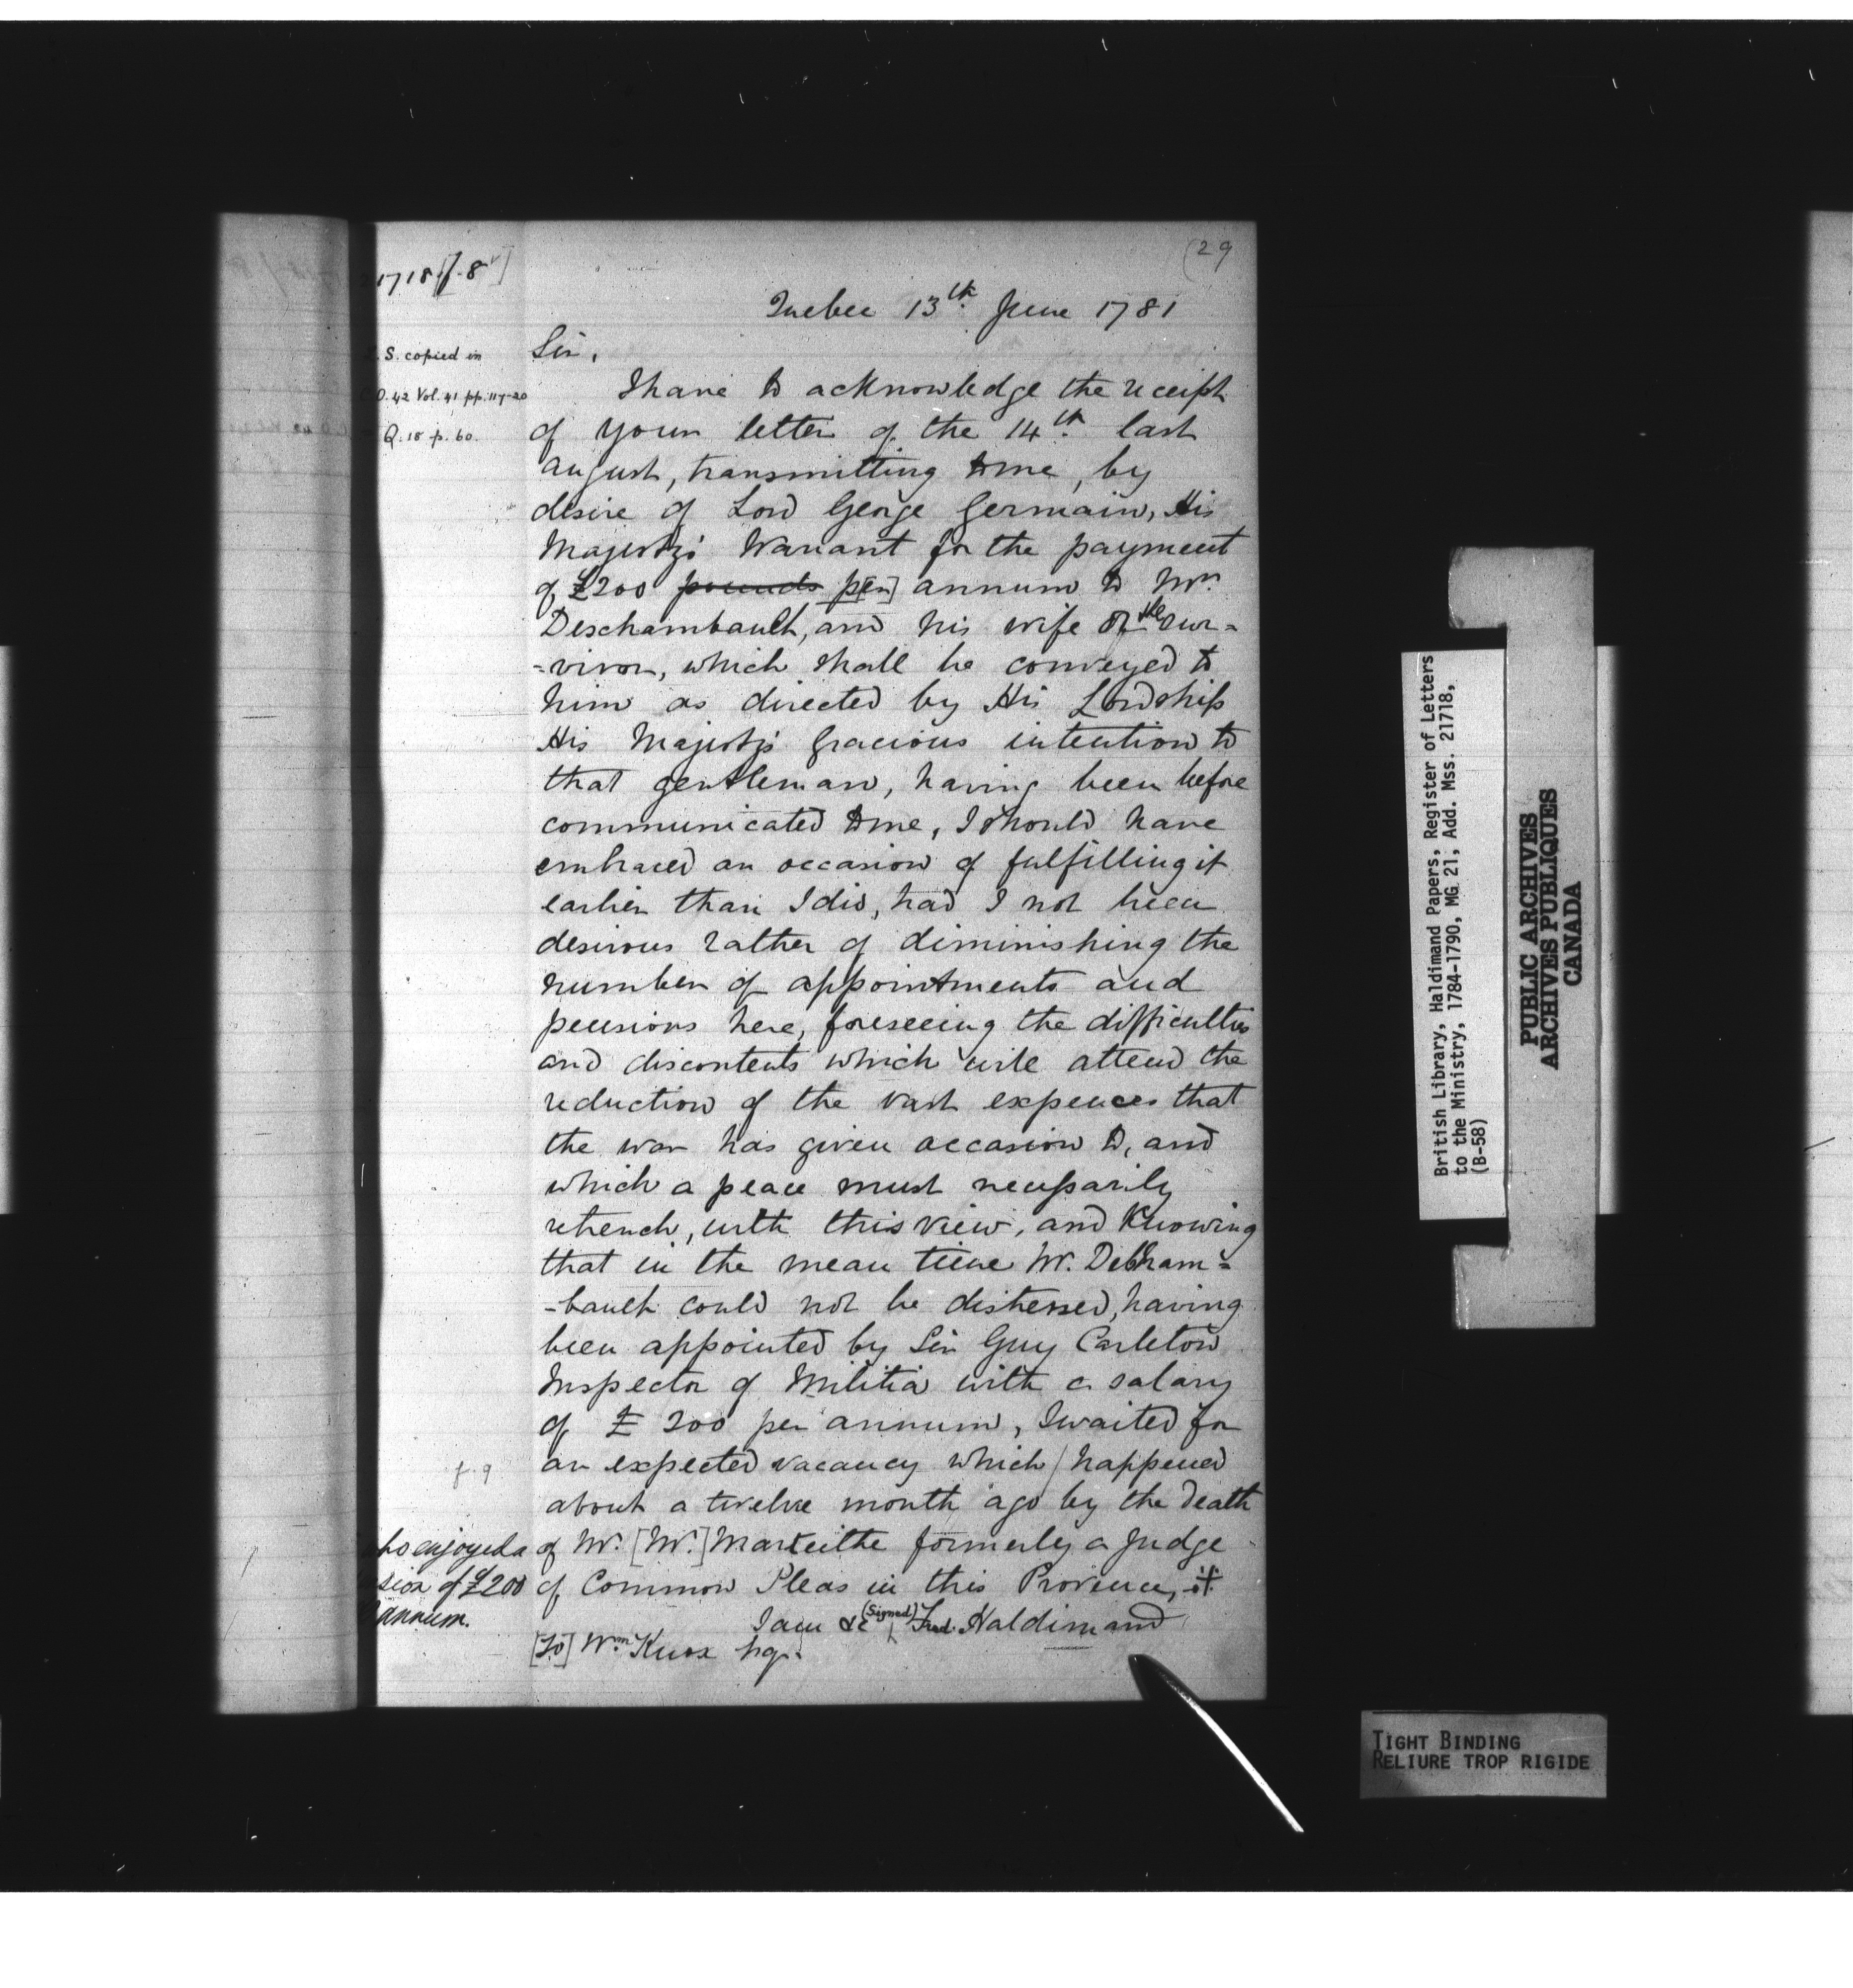 (29
21718 [f. 8v]
Quebec 13th June 1781
L. S. copied in
C.O. 42 Vol. 41 pp. 117-20
Q. 18 p. 60.
Sir,
I have to acknowledge the receipt
of your letter of the 14th last
august, transmitting to me, by
desire of Lord George Germain, His
Majesty's Warrant for the payment
of £200 pounds p[er] annum to Mr.
Deschambault, and his wife or the sur-
-vivor, which shall be conveyed to
him as directed by His Lordship
His Majesty's Gracious intention to
that gentleman, having been before
communicated to me, I should have
embraced an occasion of fulfilling it
earlier than I did, had I not been
desirous rather of diminishing the
number of appointments and
pensions here, foreseeing the difficulties
and discontents which will attend the
reduction of the vast expences that
the war has given occasion to, and
which a peace must necessarily
retrench, with this view, and Knowing
that in the mean time Mr. Decham-
-bault could not be distressed, having
been appointed by Sir Guy Carleton
Inspector of Militia with a salary
of £ 200 per annum, I waited for
an expected vacancy which / happened
f. 9
about a twelve month ago by the death
of Mr. [Mr.] Marteilhe formerly a Judge
of Common Pleas in this Province, ⁜
who enjoyed a
pension of £200
annum.
I am &c (Signed) Fred. Haldimand
[To] Wm Knox Esq.
British Library, Haldimand Papers, Register of Letters
to the Ministry, 1784-1790, MG 21, Add. Mss. 21718,
(B-58)
PUBLIC ARCHIVES
ARCHIVES PUBLIQUES
CANADA
TIGHT BINDING
RELIURE TROP RIGIDE